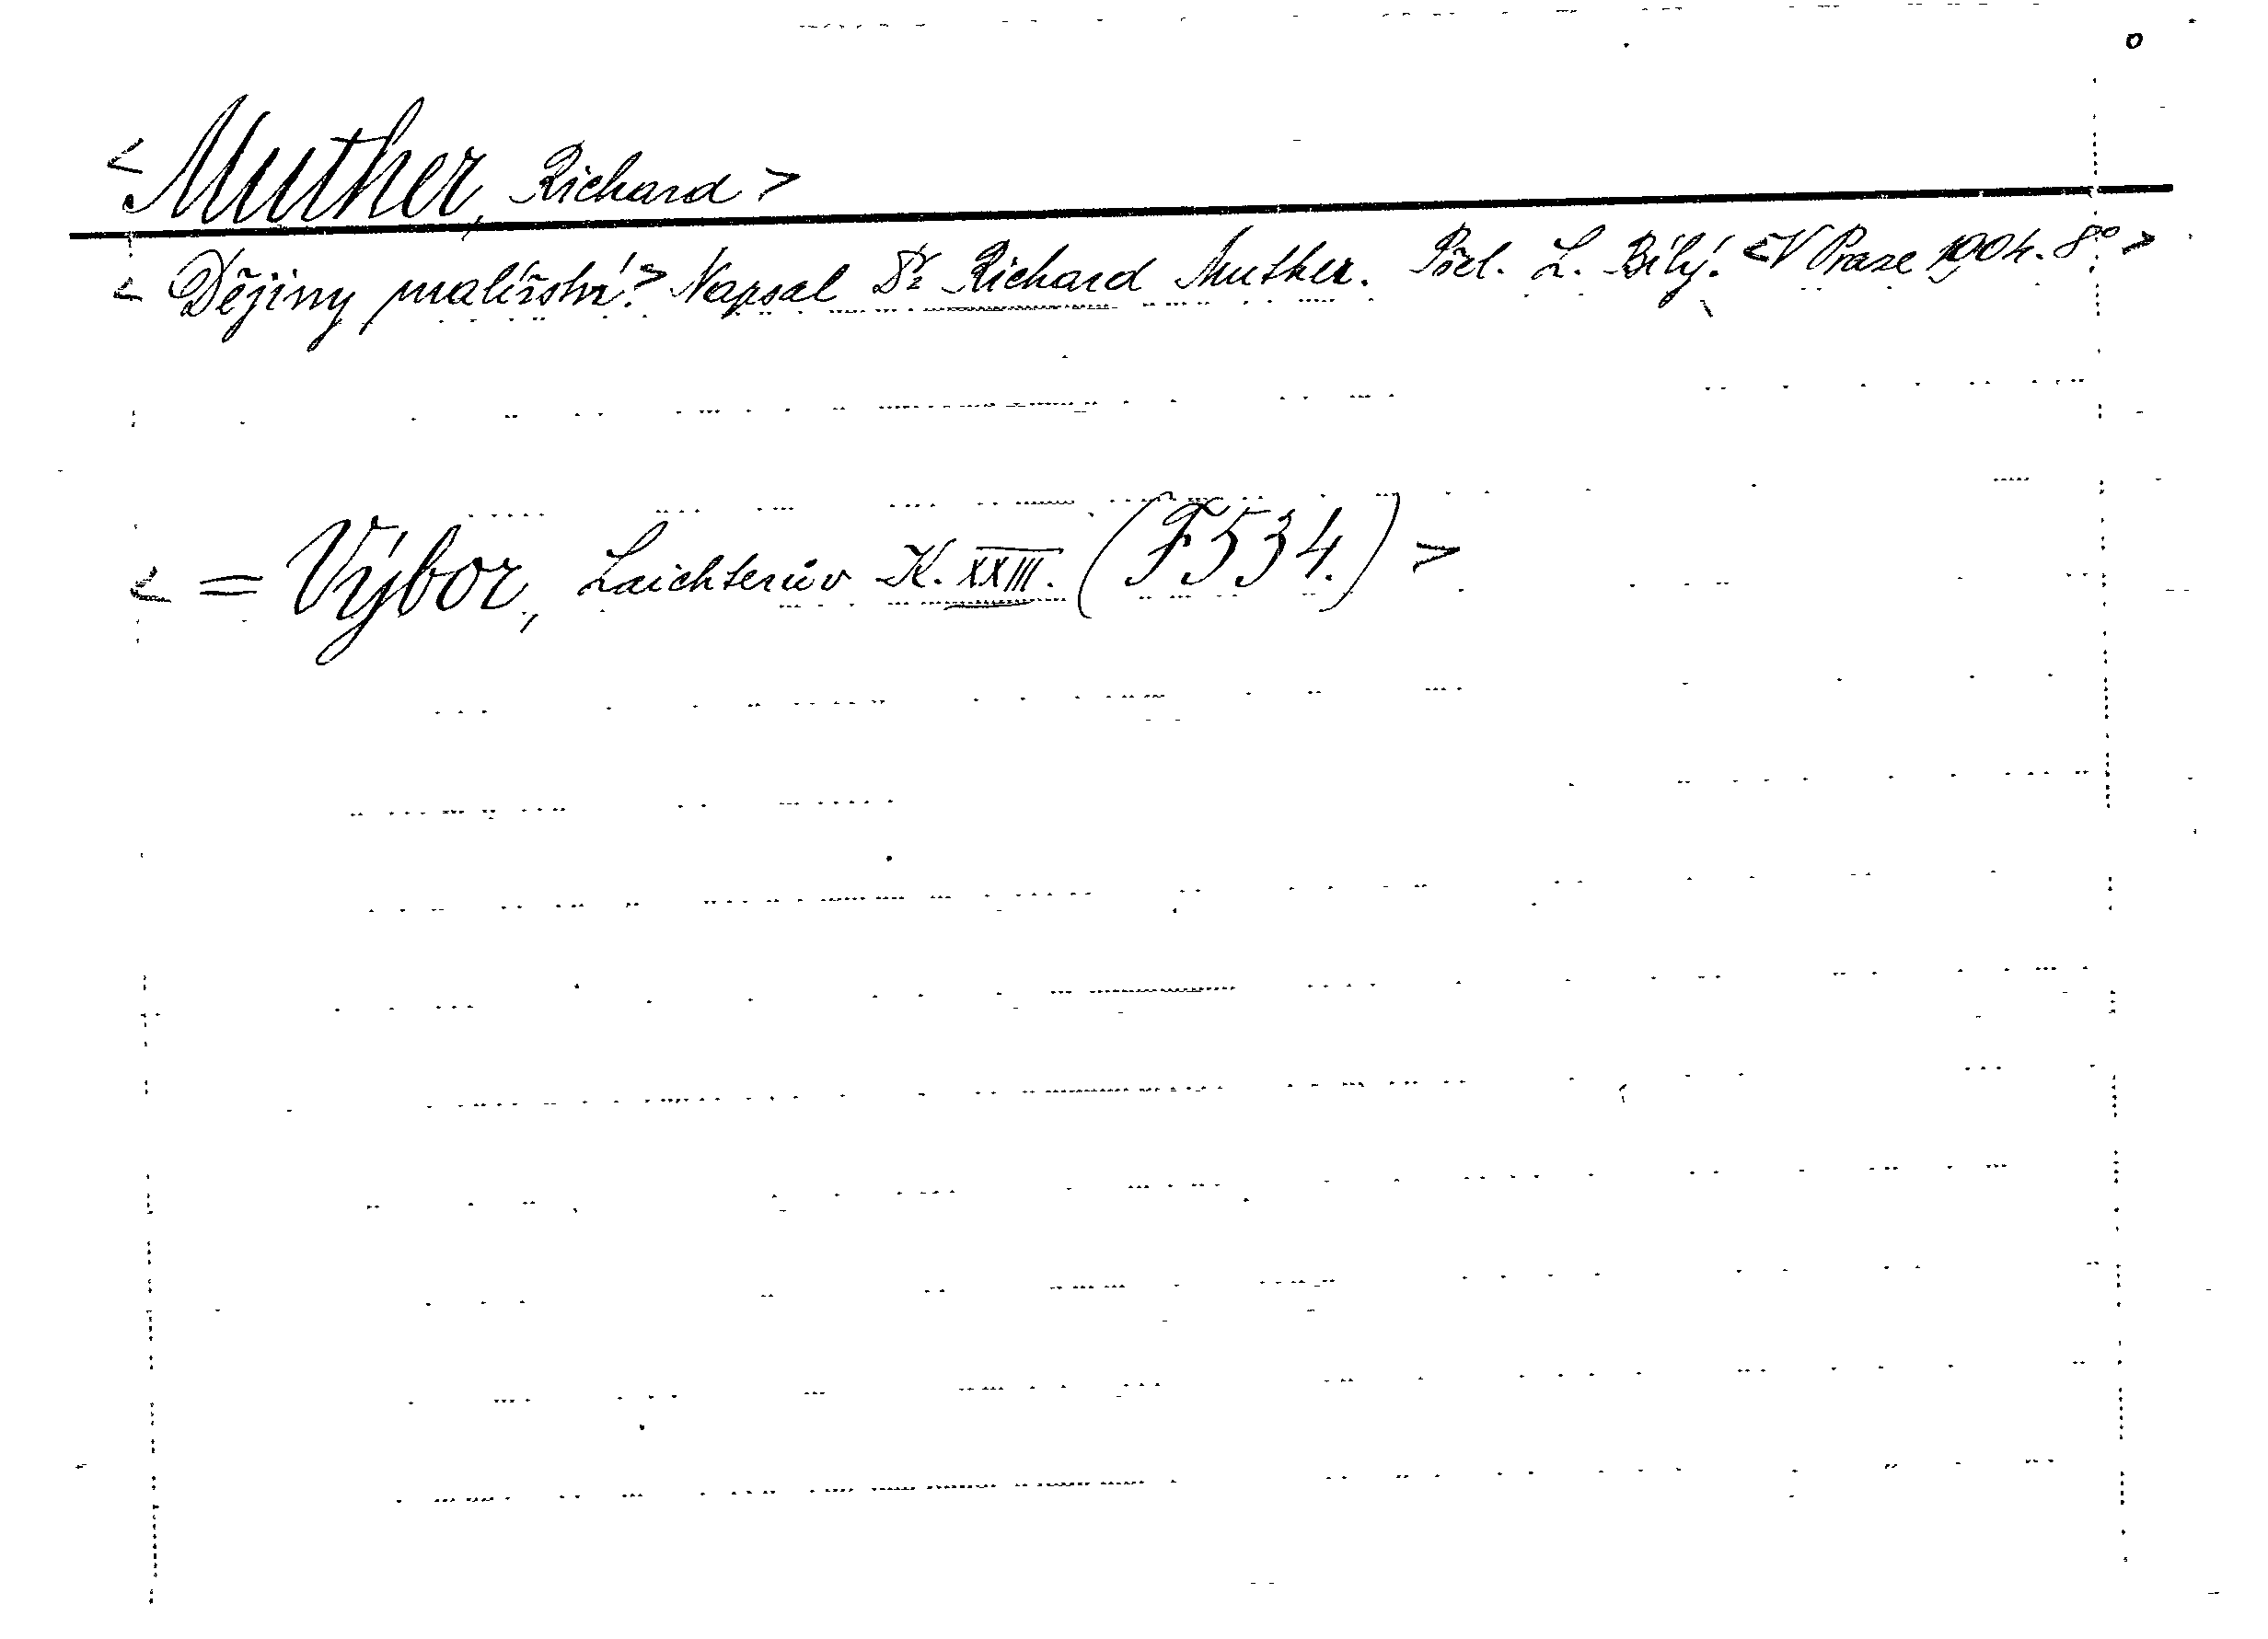 <Muther, Richard>
<Dějiny malířství.> Napsal Dr Richard Muther. Přel. L. Bílý. <V Praze 1904. 8°>
<= Výbor, Laichterův K. XXIII. (F534.)>